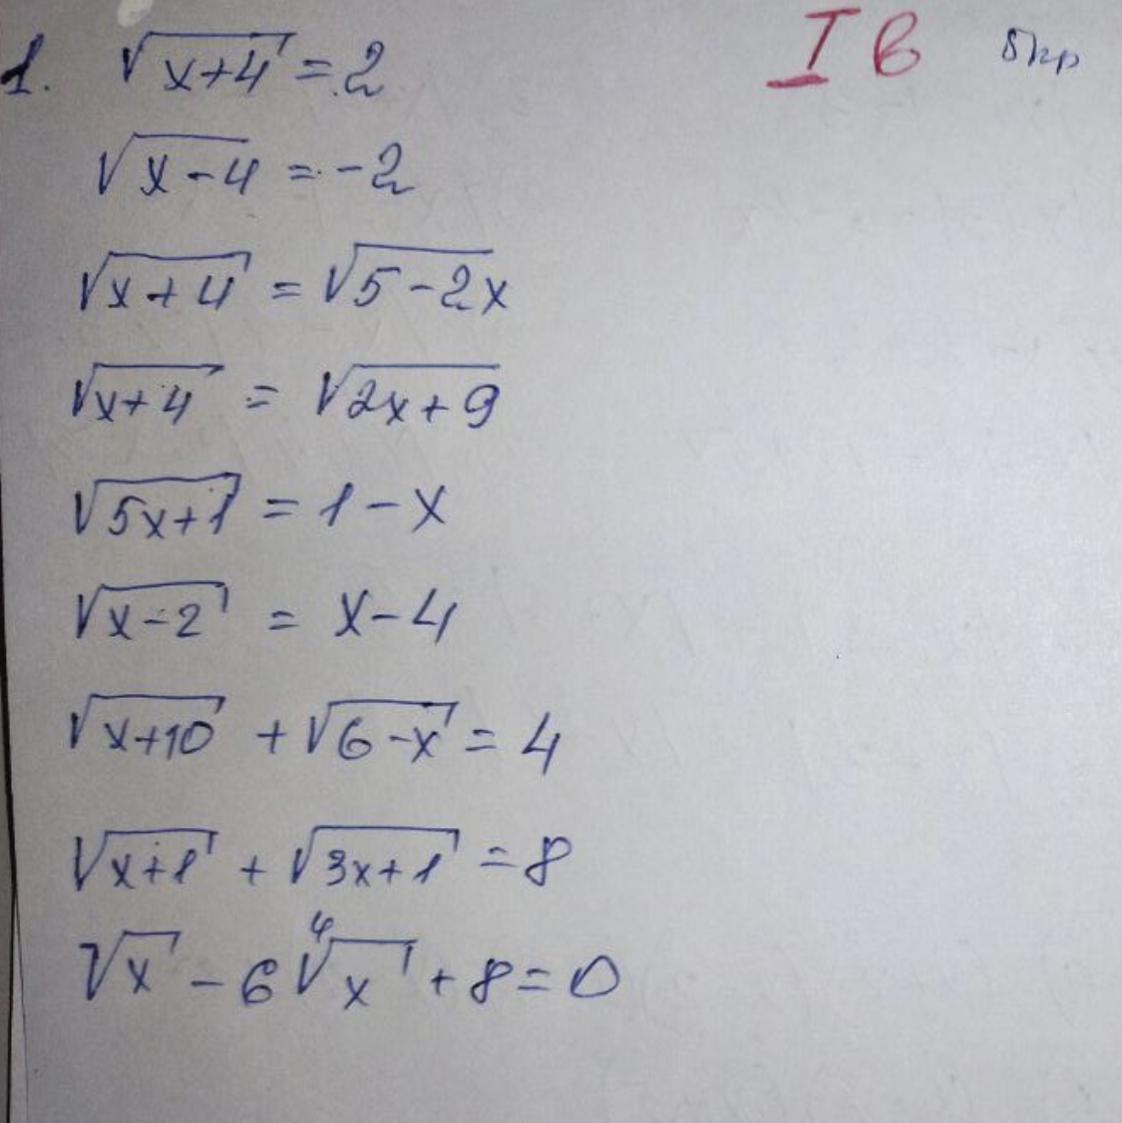 1. √(x+4) = 2 I в
√(x-4) = -2
√(x+4) = √(5-2x)
√(x+4) = √(2x+9)
√(5x+1) = 1-x
√(x-2) = x-4
√(x+10) + √(6-x) = 4
√(x+1) + √(3x+1) = 8
√x - 6 ⁴√x + 8 = 0